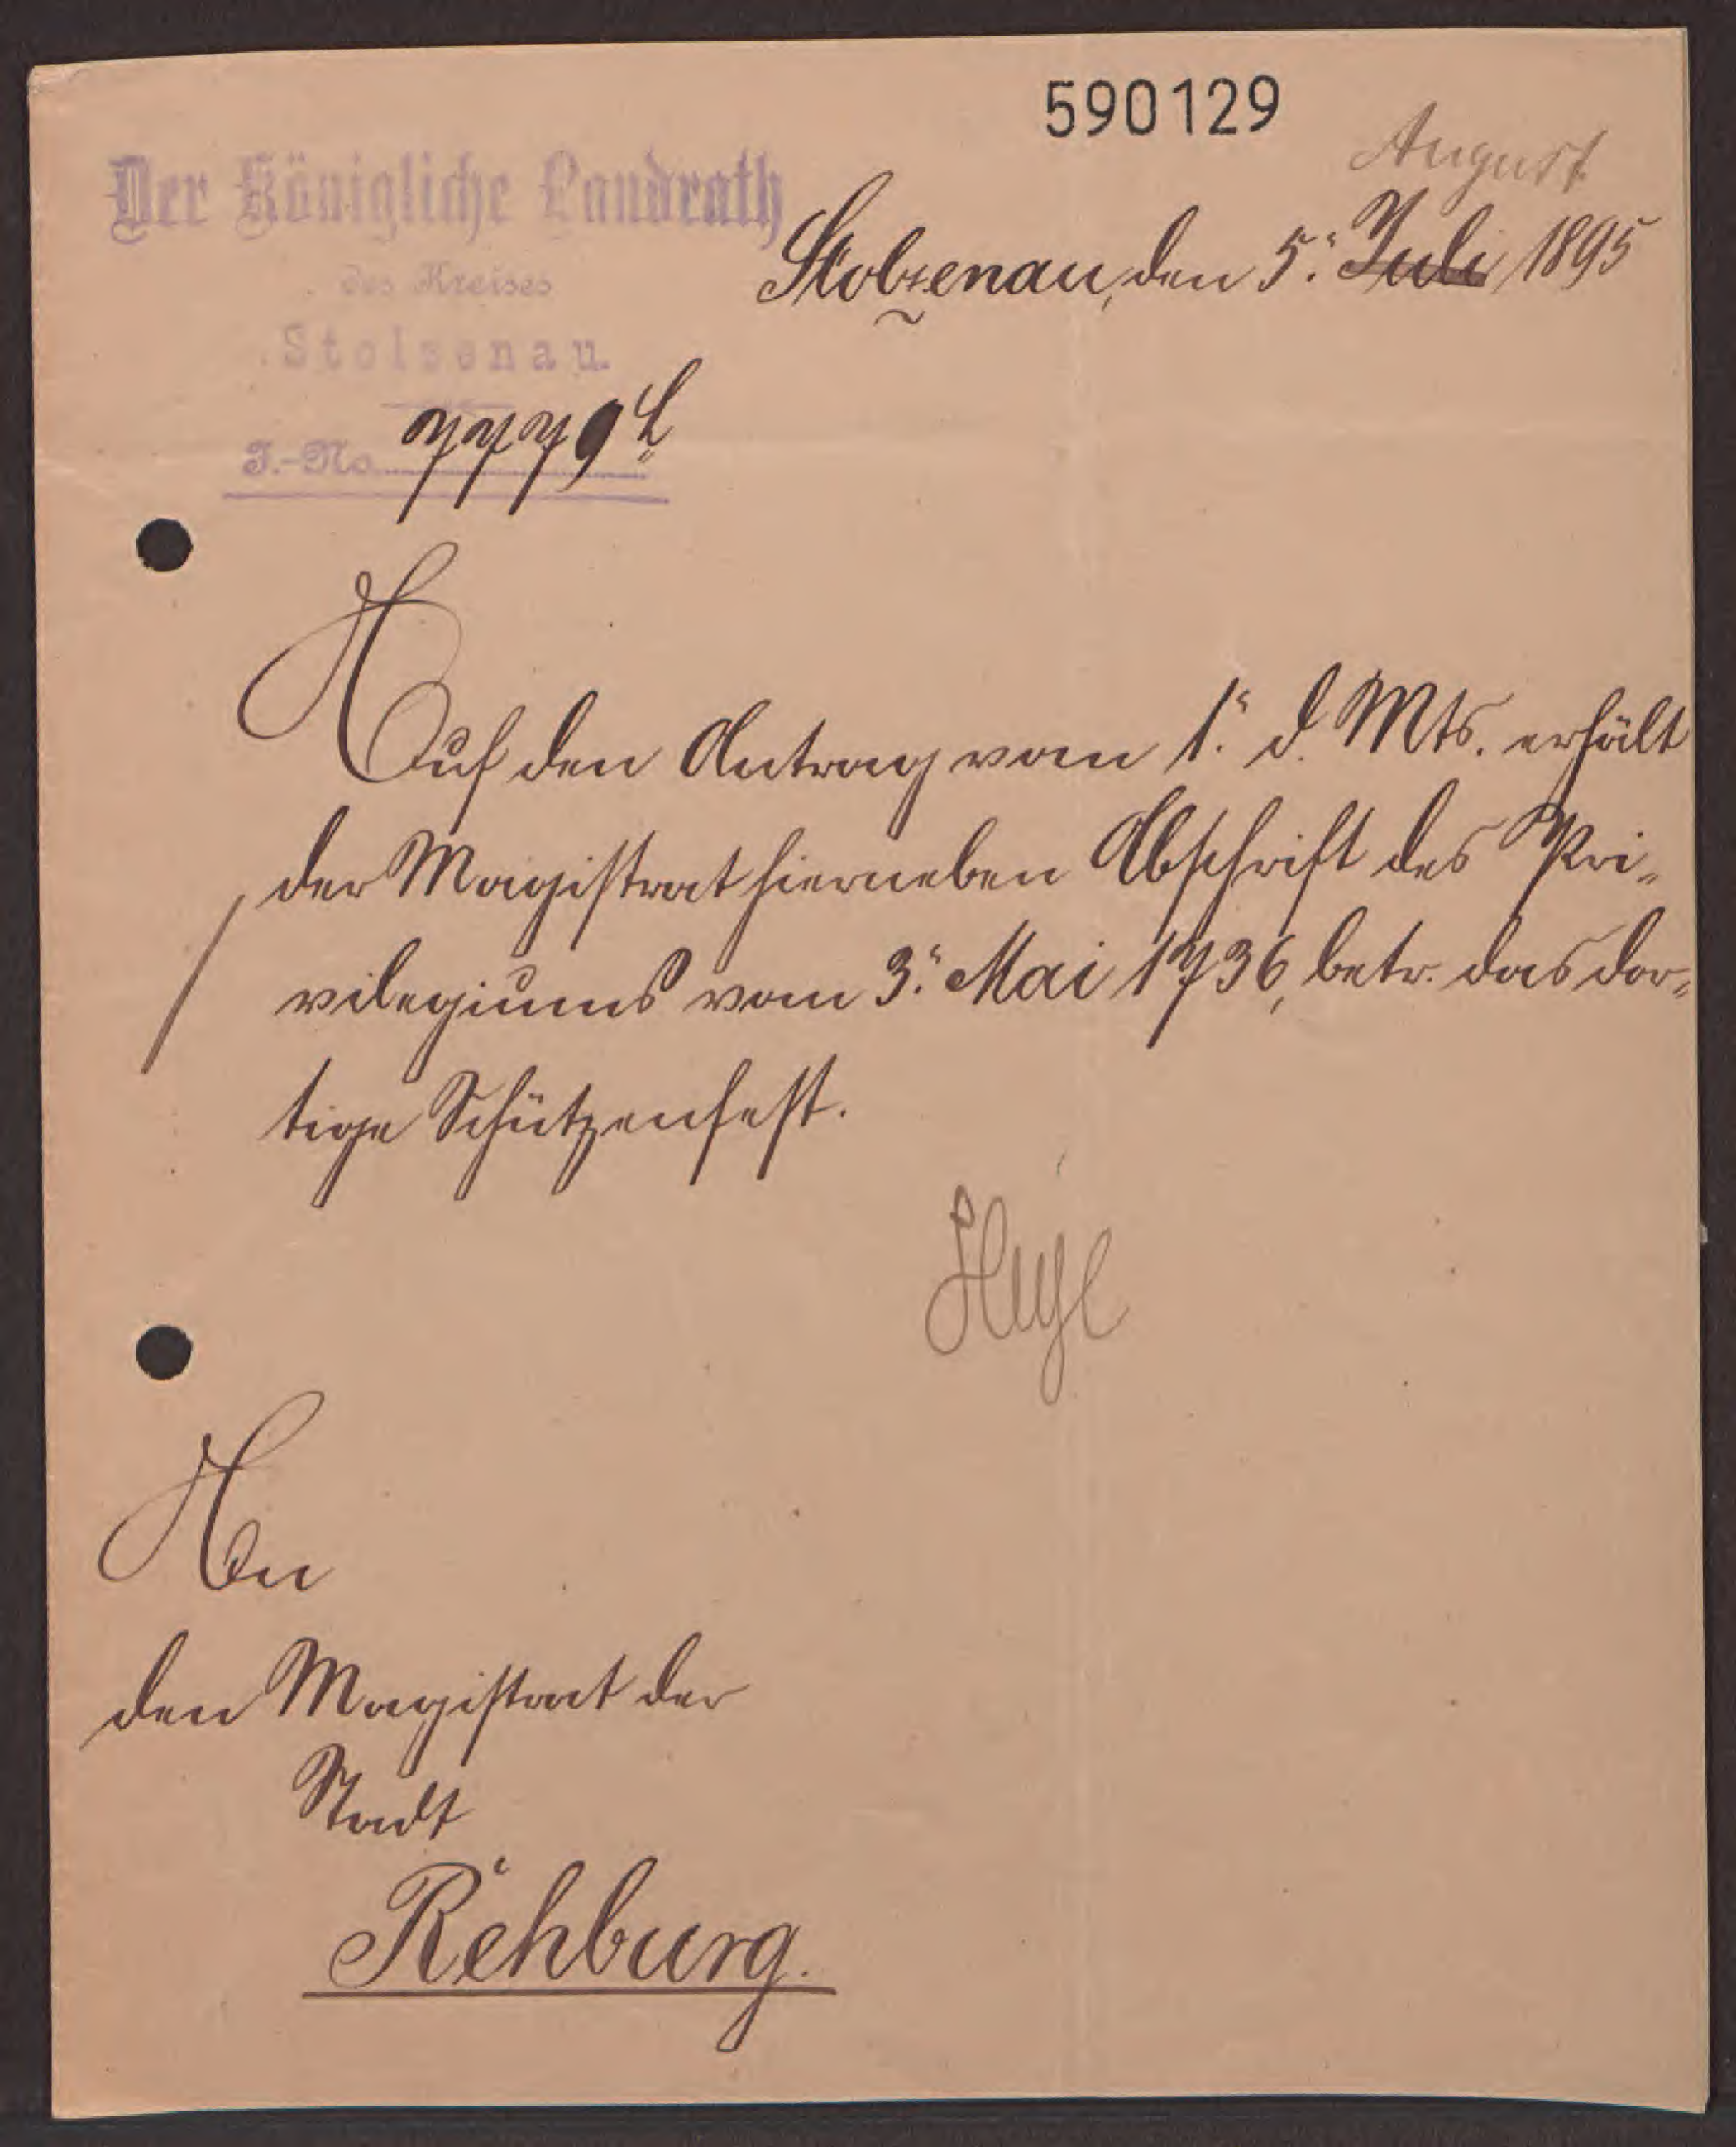 590129
Der Königliche Landrath
des Kreises
Stolzenau.
August
Stolzenau, den 5. Juli 1895
J.-No. 7779 L
Auf den Antrag vom 1. d. Mts. erhält
der Magistrat hierneben Abschrift des Pri-
vilegiums vom 3. Mai 1736, betr. das dor-
tige Schützenfest.
An
den Magistrat der
Stadt
Rehburg.